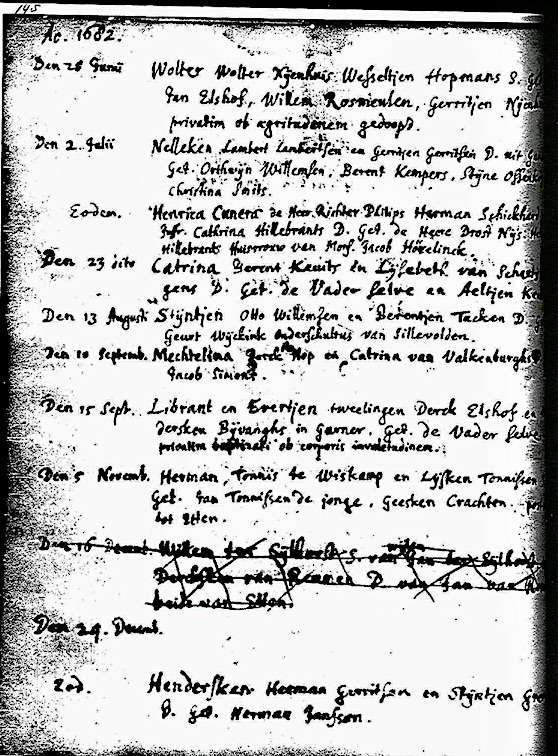 145
Ao. 1682.
Den 28 Junii Wolter Wolter Nijenhuis Wesseltjen Hopmans S. ge
Jan Elshof, Willem Rosmeulen, Gerritjen Nijenh
privatim ob ægritudinem gedoopt.
Den 2 Julii Nelleken Lambert Lambertsen en Gerritjen Gerritsen D. uit
Get. Orthwijn Willemsen, Berent Kempers, Stijne
Christina Smits.
Eodem. Henrica Cuneri de Heer Richter Philips Herman Schickhar
Jufr. Cathrina Hillebrants D. Get. de Heere Drost Nijs
Hillebrants Huisvrouw van Mons. Jacob Hövelinck.
Den 23 dito Catrina Berent en Lijsebeth van
gens D. Get. de Vader selve en Aeltjen
Den 13 Augusti Stijntjen Otto Willemsen en Berentjen Tacken D.
Geurt Wijckink onderschultus van Sillevolden.
Den 10 Septemb. Mechtelina Hop en Catrina van Valkenburghs
Jacob Simons.
Den 15 Sept. Librant en Evertjen tweelingen Derck Elshof en
dersken Bijvanghs in Garner, Get. de Vader selve
privatim baptizati ob corporis invaletudinem.
Den 5 Novemb. Herman, Tonnis te Wiskamp en Lijsken Tonnissen
Get. Jan Tonnissen de jonge, Geesken Crachten
tot Etten.
Den 16 Decemb. Willem ter S. van Jan
Dersken van Remmen D van Jan van
beide van Etten.
Den 24. Decemb.
Eod. Hendersken Herman Gerritsen en Stijntjen
D. Get. Herman Janssen.